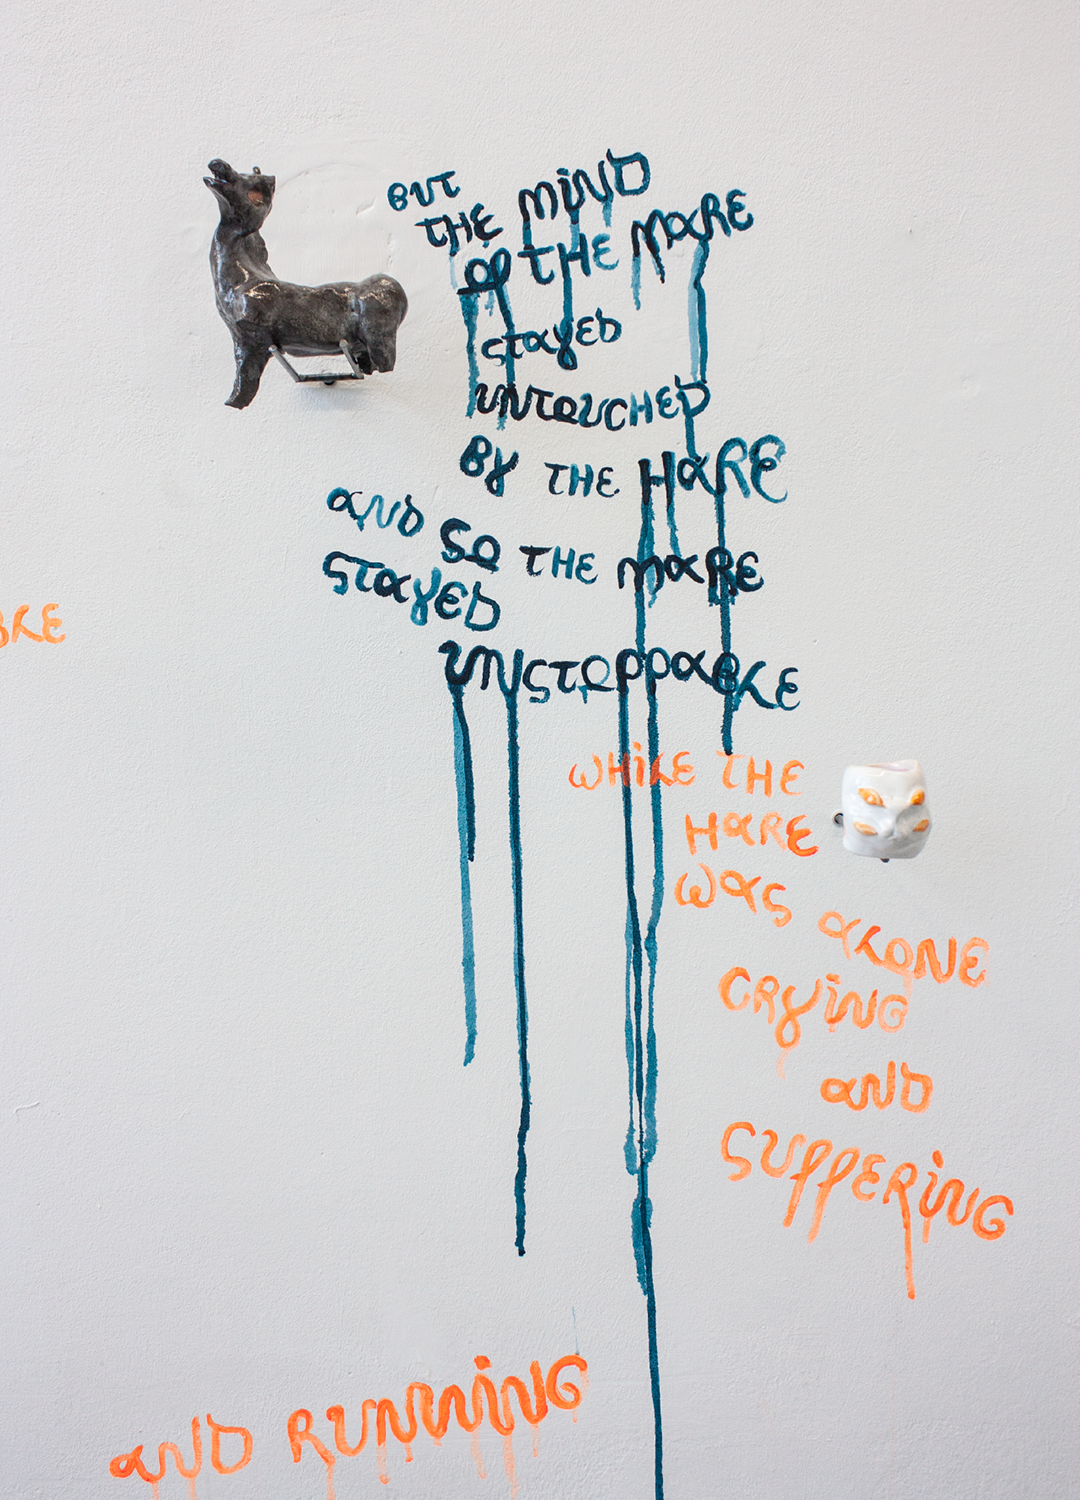 BUT
THE MIND
OF THE MARE
STAYED
UNTOUCHED
BY THE HARE
AND SO THE MARE
STAYED
UNSTOPPABLE
WHILE THE
HARE
WAS ALONE
CRYING
AND
SUFFERING
AND RUNNING